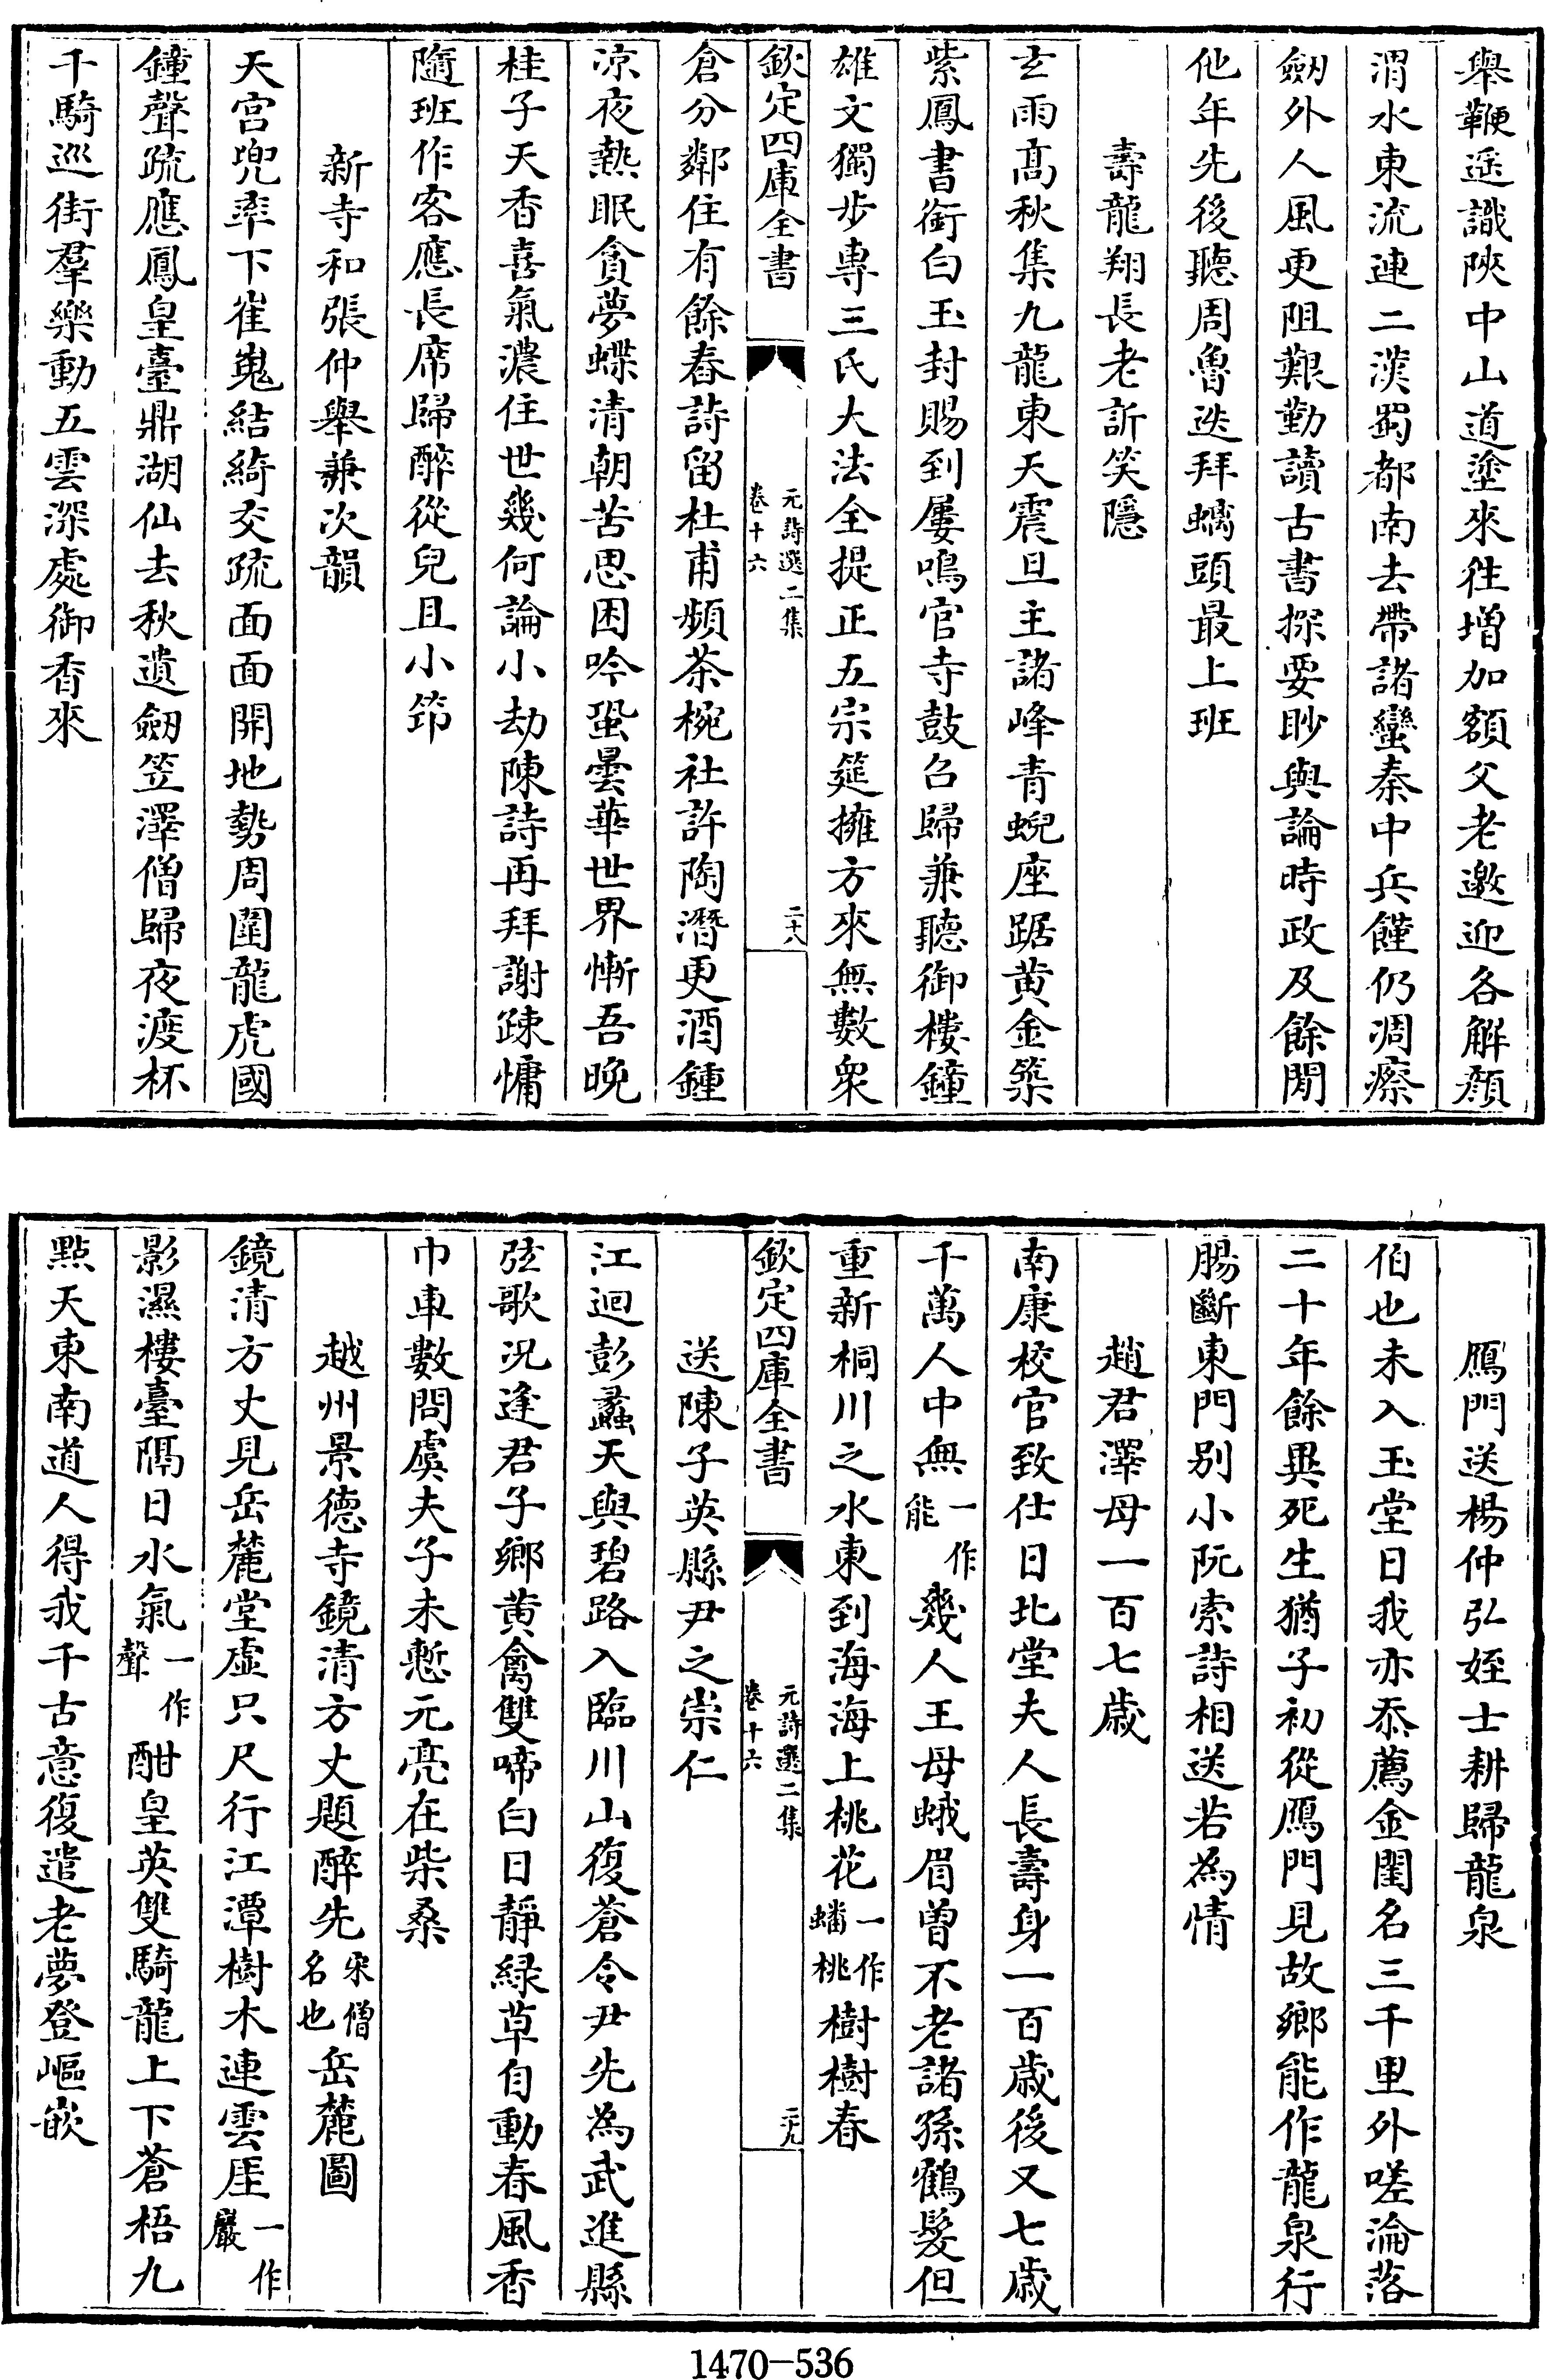 舉鞭遥識陜中山道塗來往増加額父老邀迎各解顔
渭水東流連二漢蜀都南去帶諸蠻秦中兵饉仍凋瘵
劒外人風更阻艱勤讀古書探要眇與論時政及餘閒
他年先後聽周魯迭拜螭頭最上班
壽龍翔長老訢笑隱
玄雨髙秋集九龍東天震旦主諸峰青蜺座踞黄金築
紫鳳書銜白玉封賜到屢鳴官寺鼓召歸兼聽御樓鐘
雄文獨步專三氏大法全提正五宗筵擁方來無數衆
欽定四庫全書
元詩選二集
卷十六
二十八
倉分鄰住有餘舂詩留杜甫頻茶椀社許陶潛更酒鍾
凉夜熱眠貪夢蝶清朝苦思困吟蛩曇華世界慚吾晚
桂子天香喜氣濃住世幾何論小劫陳詩再拜謝疎慵
隨班作客應長席歸醉從兒且小笻
新寺和張仲舉兼次韻
天宫兜率下崔嵬結綺交疏面面開地勢周圍龍虎國
鐘聲疏應鳳皇臺鼎湖仙去秋遺劒笠澤僧歸夜渡杯
千騎巡街羣樂動五雲深處御香來
鴈門送楊仲弘姪士耕歸龍泉
伯也未入玉堂日我亦忝薦金閨名三千里外嗟淪落
二十年餘異死生猶子初從鴈門見故鄉能作龍泉行
腸斷東門别小阮索詩相送若為情
趙君澤母一百七歳
南康校官致仕日北堂夫人長壽身一百歳後又七歳
千萬人中無一作能幾人王母蛾眉曽不老諸孫鶴髮但
重新桐川之水東到海海上桃花一作蟠桃樹樹春
欽定四庫全書
元詩選二集
卷十六
二十九
送陳子英縣尹之崇仁
江迴彭蠡天與碧路入臨川山復蒼令尹先為武進縣
弦歌况逢君子鄉黄禽雙啼白日靜緑草自動春風香
巾車數問虞夫子未慙元亮在柴桑
越州景德寺鏡清方丈題醉先宋僧名也岳麓圖
鏡清方丈見岳麓堂虚只尺行江潭樹木連雲厓一作巖
影濕樓臺隔日水氣一作聲酣皇英雙騎龍上下蒼梧九
點天東南道人得我千古意復遣老夢登嶇嶔
1470-536